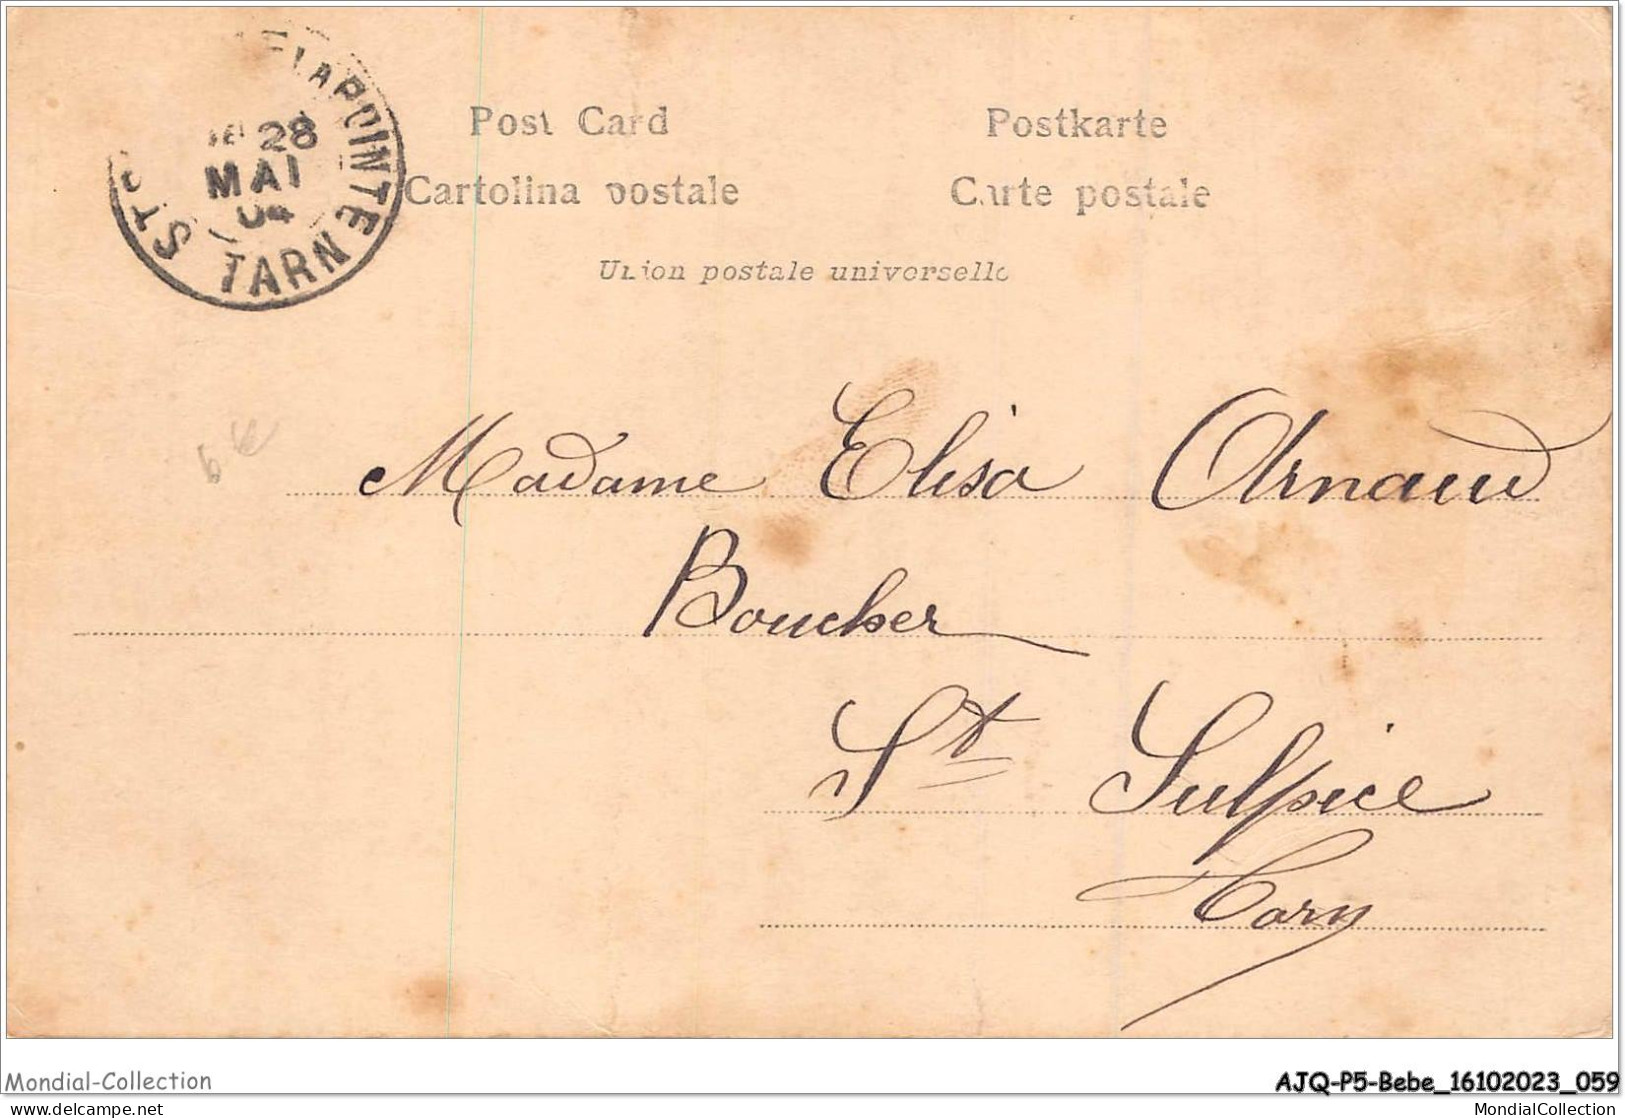 ST S LAPOINTE TARN
28
MAI
04
Post Card
Postkarte
Cartolina postale
Carte postale
Union postale universelle
Madame Elisa Arnaud
Boucher
St Sulpice
Tarn
Mondial-Collection
AJQ-P5-Bebe_16102023_059
delcampe.net
MondialCollection